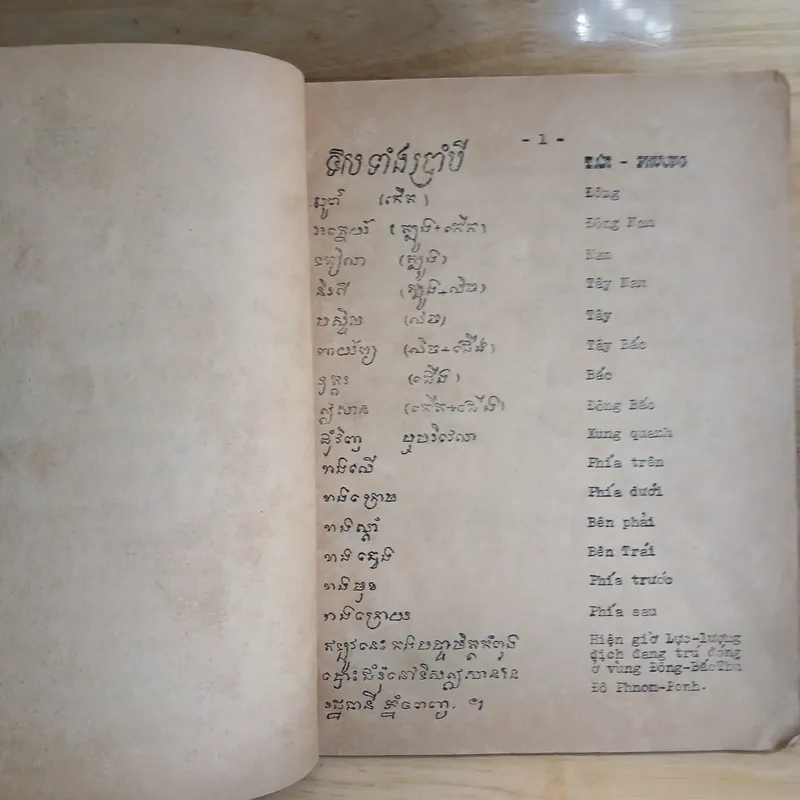 - 1 -
ទិសទាំងប្រាំបី
បូព៌ (កើត) Đông
អគ្នេយ៍ (ត្បូង+កើត) Đông Nam
ទក្សិណ (ត្បូង) Nam
និរតី (ត្បូង+លិច) Tây Nam
បស្ចិម (លិច) Tây
ពាយ័ព្យ (លិច+ជើង) Tây Bắc
ឧត្តរ (ជើង) Bắc
ឦសាន (កើត+ជើង) Đông Bắc
ជុំវិញ Xung quanh
ខាងលើ Phía trên
ខាងក្រោម Phía dưới
ខាងស្តាំ Bên phải
ខាងឆ្វេង Bên Trái
ខាងមុខ Phía trước
ខាងក្រោយ Phía sau
ឥឡូវនេះ កងបច្ចាមិត្តកំពុង Hiện giờ Lực-lượng
địch đang trú đóng
បោះជំរុំនៅទិសឦសាននៃ ở vùng Đông-Bắc Thủ
Đô Phnom-Penh.
រដ្ឋធានី ភ្នំពេញ. ។